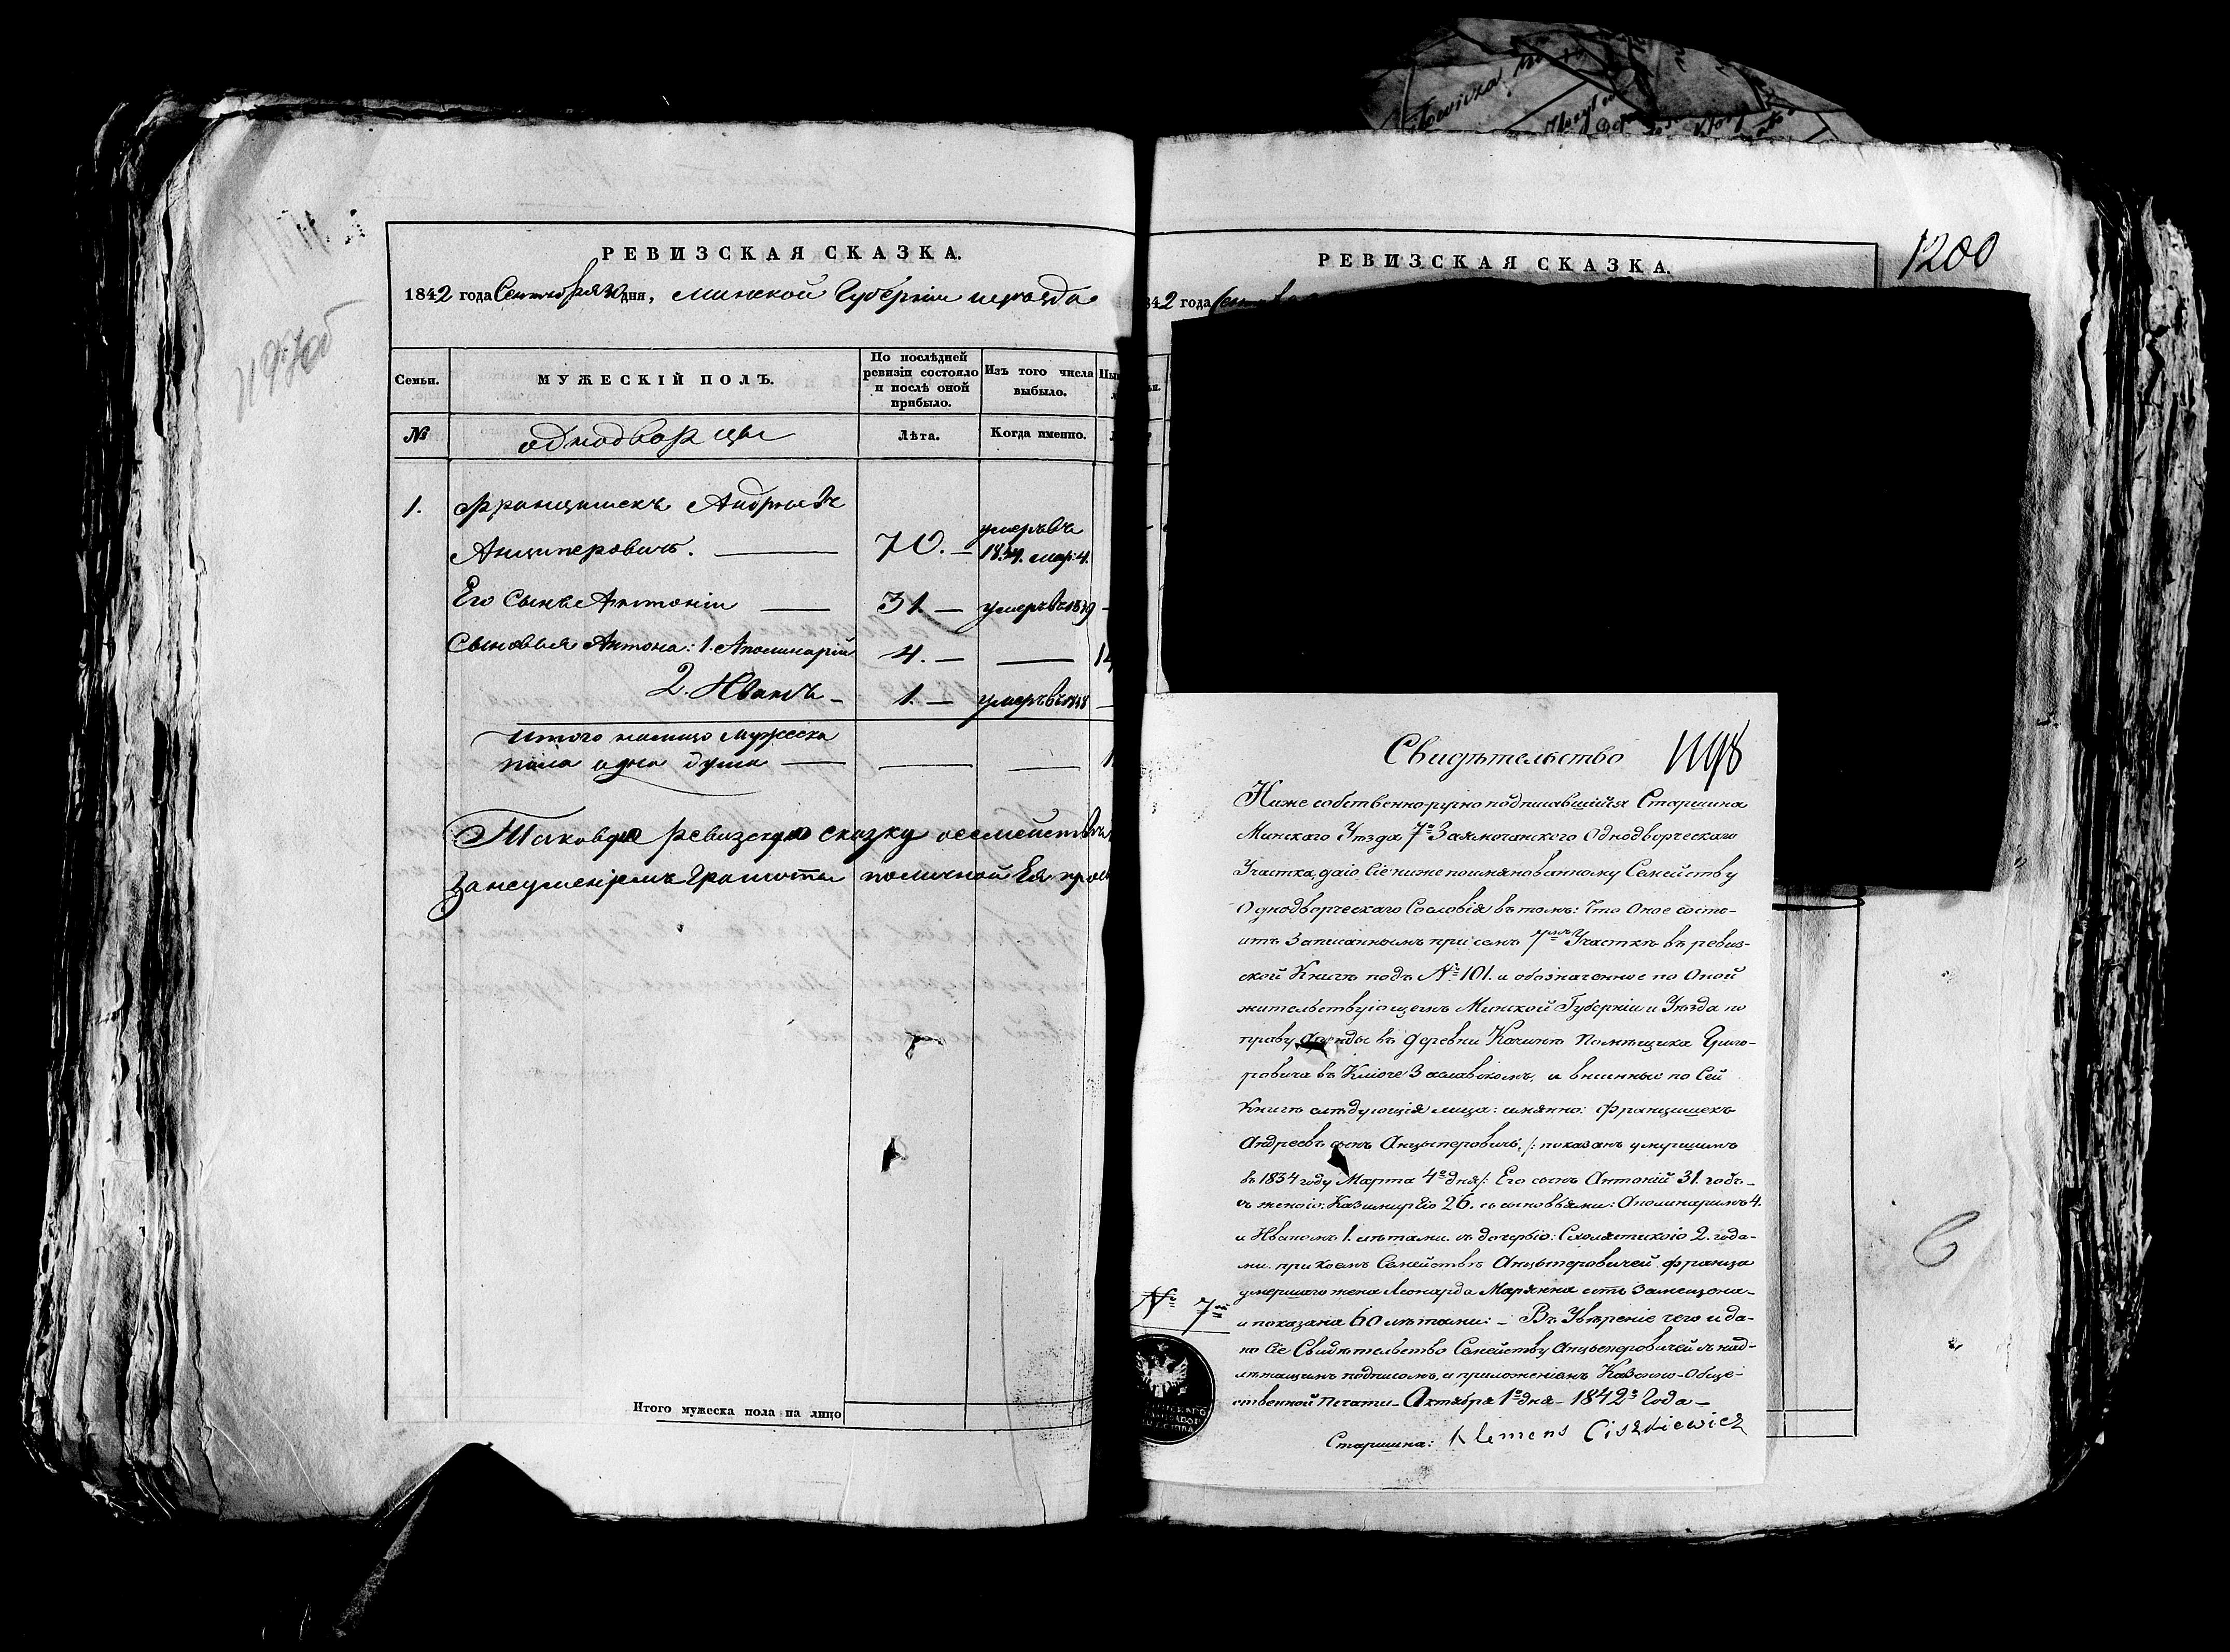 РЕВИЗСКАЯ СКАЗКА.
1842 года Сентября 30 дня, Минской Губерніи и уезда
Семьи.
МУЖЕСКІЙ ПОЛЪ.
По послѣдней ревизіи состояло и послѣ оной прибыло.
Изъ того числа выбыло.
№
однодворцы
Лѣта.
Когда именно.
1.
Францишекъ Андреевъ
Анциперовичъ. 70. умеръ въ 1834. мар: 4.
Его сынъ Антоніи 31. умеръ въ 1839
Сыновья Антона: 1. Аполинарій 4. 14
2. Иванъ 1. умеръ въ
итого налицо мужеска
пола одна душа
Таковую ревизскую сказку
за неумѣніемъ Грамоты по личной Ея
Итого мужеска пола на лицо
РЕВИЗСКАЯ СКАЗКА.
42 года
1200
Свидѣтельство 1198
Ниже собственноручно подписавшійся Старшина
Минскаго Уѣзда 7го Однодворческаго
Участка, даю Сіе нижепоимянованному Семейству
Однодворческаго Сословія въ томъ: Что Оное состо-
итъ Записаннымъ при семъ 7мъ Участкѣ въ ревиз-
ской Книгѣ подъ № 101. и обозначенное по Оной
жительствующемъ Минской Губерніи и Уѣзда по
праву аренды въ деревни Качинѣ Помѣщика Григо-
ровича въ Ключе Заславскомъ, и внесенные по Сей
Книгѣ слѣдующія лица: имянно: Францишекъ
Андреевъ сынъ Анцыперовичъ, /: показанъ умершимъ
въ 1834 году Марта 4го дня/: Его сынъ Антоній 31. годъ-
съ женою: Казимирѣю 26. съ сыновьями: Аполинаримъ 4.
и Иваномъ 1. лѣтами. съ дочерью: Схолястикою 2. года-
ми. при коемъ Семействѣ Анцыперовичей Франца
умершаго жена Леонарда Марянна
и показана 60 лѣтами: - Въ Увѣреніе чего и да-
но Сіе Свидѣтельство Семейству Анцыперовичей съ над-
лѣжащимъ подписомъ, и приложеніемъ Казенно-Обще-
ственной Печати. Октября 1го дня 1842го Года
№ 7й
Старшина: Klemens Ciszkiewicz